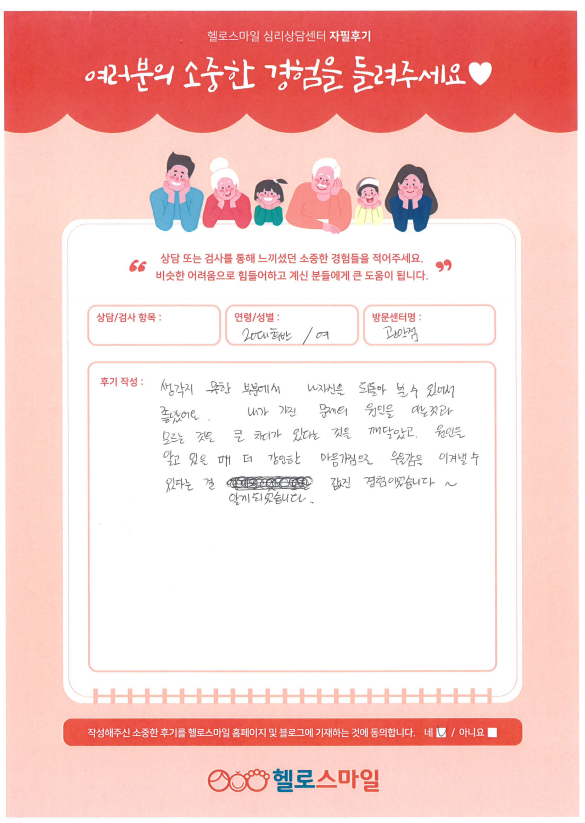 헬로스마일 심리상담센터 자필후기
여러분의 소중한 경험을 들려주세요
상담 또는 검사를 통해 느끼셨던 소중한 경험들을 적어주세요.
비슷한 어려움으로 힘들어하고 계신 분들에게 큰 도움이 됩니다.
상담/검사 항목 :
연령/성별 :
20대 후반 / 여
방문센터명 :
관악점
후기 작성 :
생각지 못한 부분에서 나자신을 되돌아 볼 수 있어서
좋았어요. 내가 가진 문제의 원인을 아는것과
모르는 것은 큰 차이가 있다는 것을 깨달았고, 원인을
알고 있을 때 더 강인한 마음가짐으로 우울감을 이겨낼 수
있다는 걸 값진 경험이었습니다 ~
알게 되었습니다..
작성해주신 소중한 후기를 헬로스마일 홈페이지 및 블로그에 기재하는 것에 동의합니다. 네 / 아니요
헬로스마일